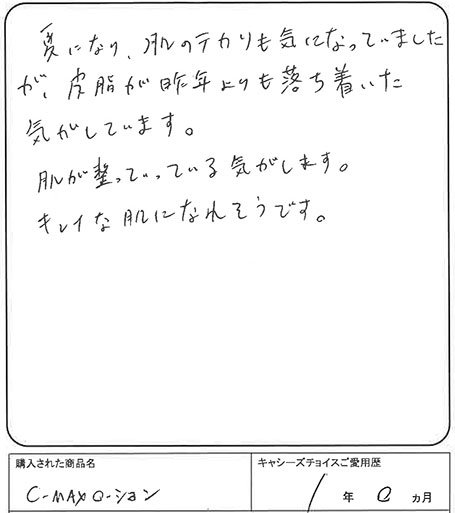 夏になり、肌のテカリも気になっていました
が、皮脂が昨年よりも落ち着いた
気がしています。
肌が整っていっている気がします。
キレイな肌になれそうです。
購入された商品名
キャシーズチョイスご愛用歴
C-MAXローション
1年 0ヵ月